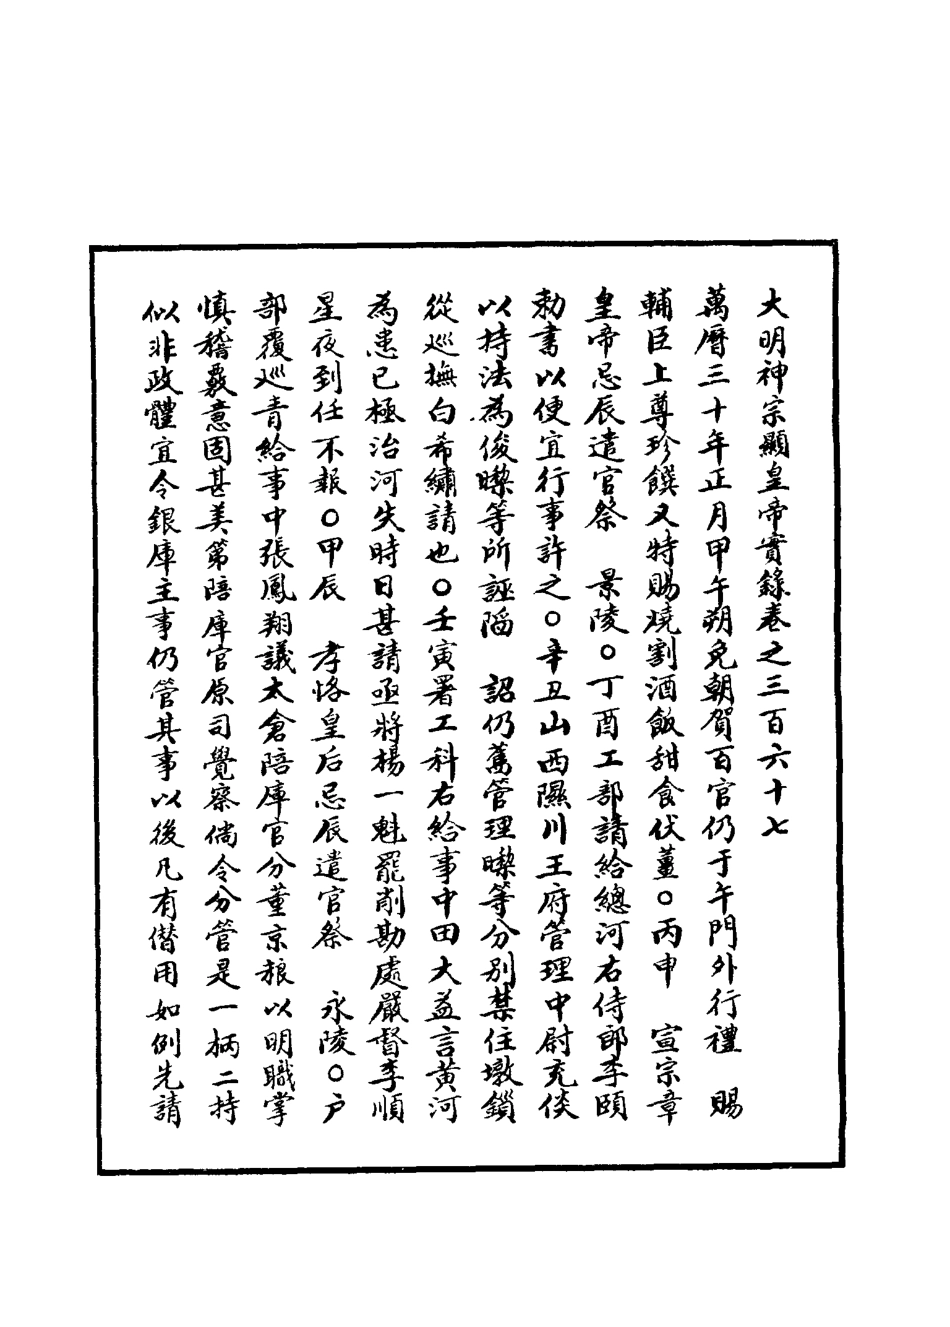 大明神宗顯皇帝實錄卷之三百六十七
萬曆三十年正月甲午朔免朝賀百官仍于午門外行禮 賜
輔臣上尊珍饌又特賜燒割酒飯甜食伏薑○丙申 宣宗章
皇帝忌辰遣官祭 景陵○丁酉工部請給總河右侍郎李頤
勅書以便宜行事許之○辛丑山西隰川王府管理中尉充倓
以持法為俊㬠等所誣陷 詔仍舊管理㬠等分別禁住墩鎖
從巡撫白希繡請也○壬寅署工科右給事中田大益言黃河
為患已極治河失時日甚請亟將楊一魁罷削勘處嚴督李順
星夜到任不報○甲辰 孝恪皇后忌辰遣官祭 永陵○戶
部覆巡青給事中張鳳翔議太倉陪庫官分董京粮以明職掌
慎稽覈意固甚美第陪庫官原司覺察倘令分管是一柄二持
似非政體宜令銀庫主事仍管其事以後凡有僣用如例先請